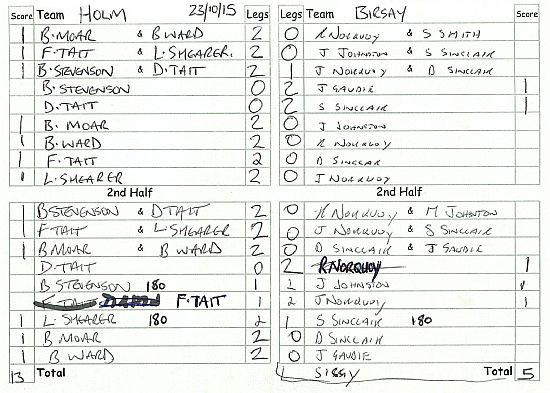 Score Team HOLM 23/10/15 Legs Legs Team BIRSAY Score
1 B. MOAR & B WARD 2 0 R NORQUOY & S SMITH
1 F. TAIT & L. SHEARER. 2 0 J JOHNSTON & S SINCLAIR
1 B. STEVENSON & D. TAIT 2 1 J NORQUOY & D SINCLAIR
B. STEVENSON 0 2 J GAUDIE 1
D. TAIT 0 2 S SINCLAIR 1
1 B. MOAR 2 0 J JOHNSTON
1 B. WARD 2 0 R NORQUOY
1 F. TAIT 2 0 D SINCLAR
1 L. SHEARER 2 0 J NORQUOY
2nd Half 2nd Half
1 B STEVENSON & D TAIT 2 0 R NORQUOY & M JOHNTON
1 F TAIT & L. SHEARER 2 0 J NORQUOY & S SINCLAIR
1 B MOAR & B WARD 2 0 D SINCLAIR & J GAUDIE
D. TAIT 0 2 R NORQUOY 1
B STEVENSON 180 1 2 J JOHNSTON 1
F. TAIT F. TAIT 1 2 J NORQUOY 1
1 L. SHEARER 180 2 1 S SINCLAIR 180
1 B MOAR 2 0 D SINCLAIR
1 B WARD 2 0 J GAUDIE
13 Total SISSY Total 5